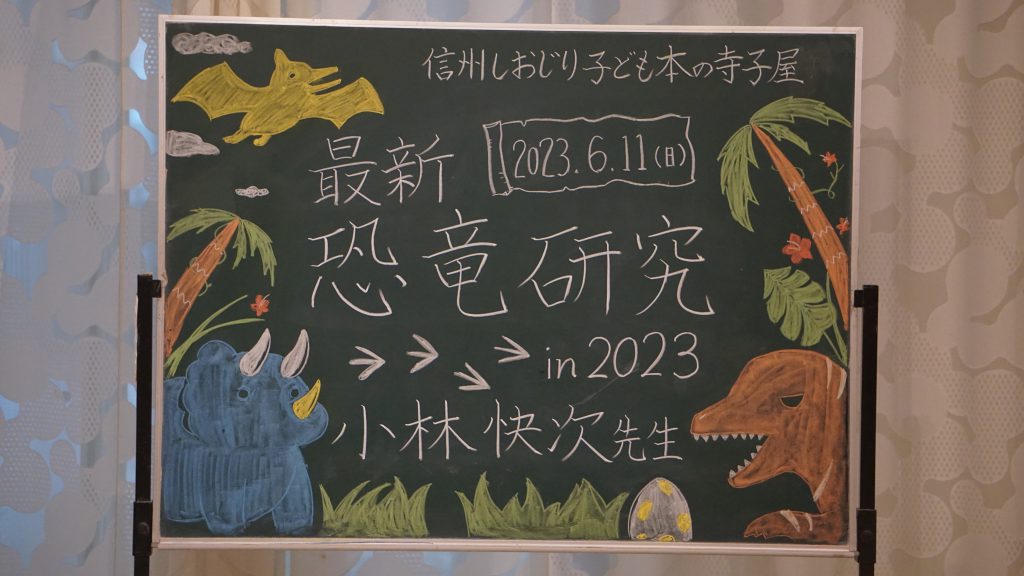 信州しおじり子ども本の寺子屋
2023.6.11(日)
最新
恐竜研究
in 2023
小林快次先生